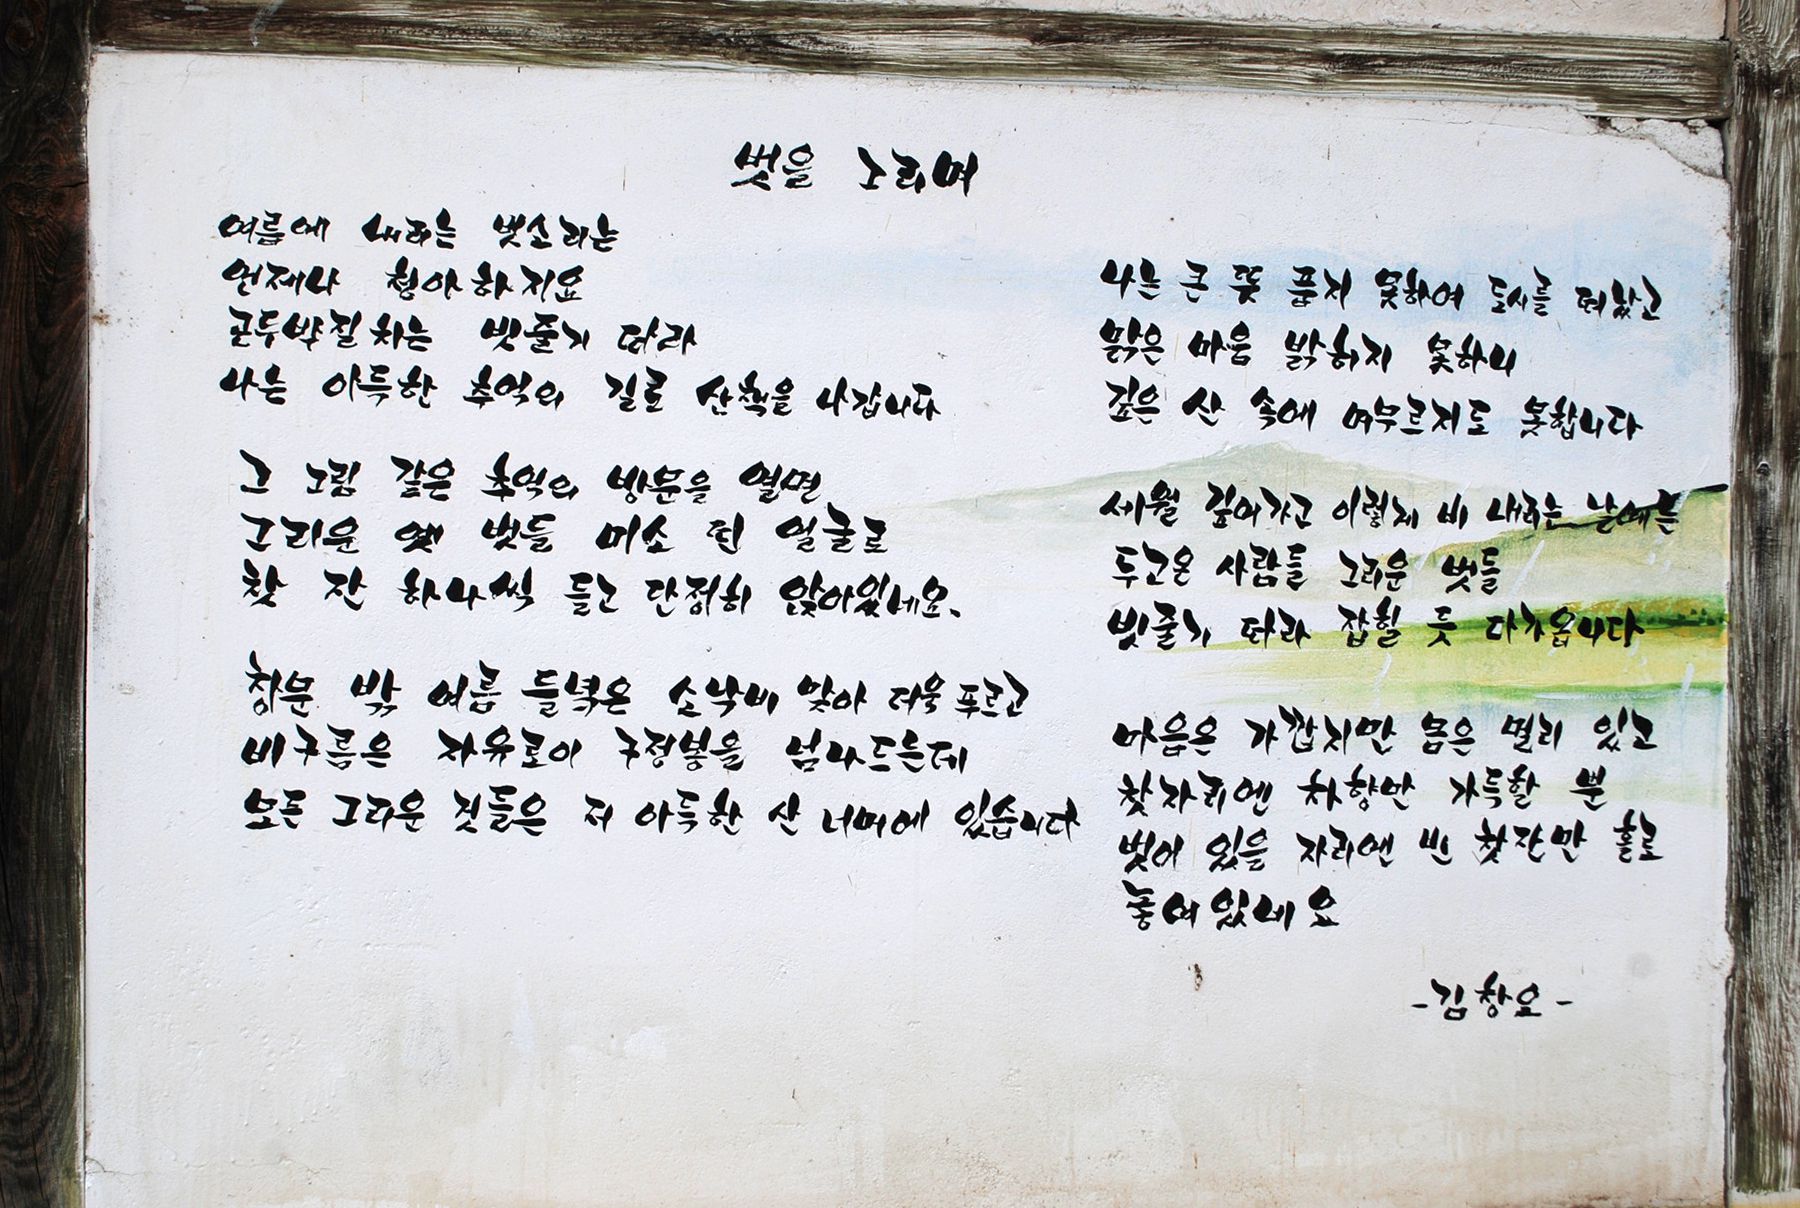 벗을 그리며
여름에 내리는 빗소리는
언제나 청아하지요
곤두박질치는 빗줄기 따라
나는 아득한 추억의 길로 산책을 나갑니다
그 그림 같은 추억의 방문을 열면
그리운 옛 벗들 미소 띤 얼굴로
찻 잔 하나씩 들고 단정히 앉아있네요.
창문 밖 여름 들녘은 소낙비 맞아 더욱 푸르고
비구름은 자유로이 구정봉을 넘나드는데
모든 그리운 것들은 저 아득한 산 너머에 있습니다
나는 큰 뜻 품지 못하여 도시를 떠났고
맑은 마음 밝히지 못하니
깊은 산 속에 머무르지도 못합니다
세월 깊어가고 이렇게 비 내리는 날에는
두고온 사람들 그리운 벗들
빗줄기 따라 잡힐 듯 다가옵니다
마음은 가깝지만 몸은 멀리 있고
찻자리엔 차향만 가득할 뿐
벗이 있을 자리엔 빈 찻잔만 홀로
놓여있네요
-김창오-